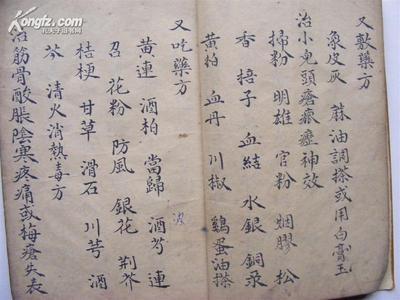 又敷藥方
象皮灰　蔴油調搽或用白膏玉
治小兒頭瘡瘢瘞神效
掃粉　明雄　官粉　烟膠　松
香　掊子　血結　水銀　銅彔
黄柏　血丹　川椒　鷄蛋油搽
又吃藥方
黄連　酒柏　當歸　酒芍　連
召　花粉　防風　銀花　荆芥
桔梗　甘草　滑石　川芎　酒
芩　清火消熱毒方
治筋骨酸脹陰寒疼痛或梅瘡失表
Kongfz.com
孔夫子旧书网